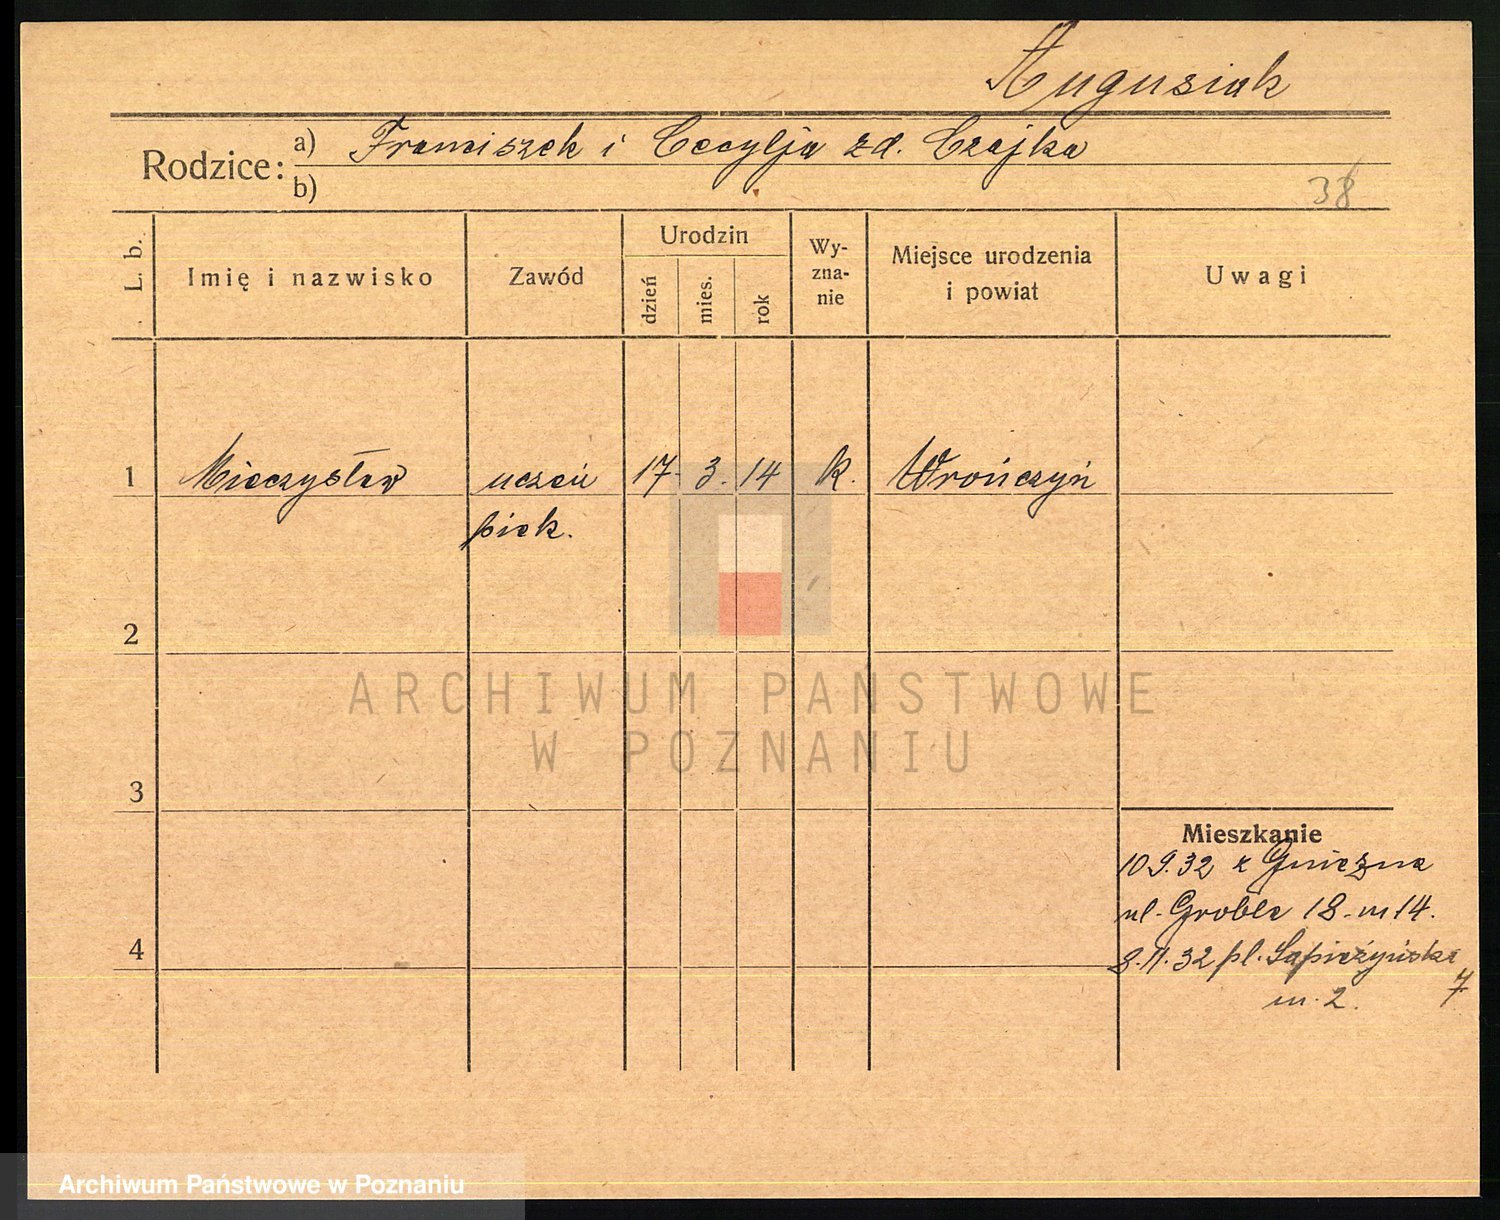 Augusiak
Rodzice:
a) Franciszek i Cecylja zd. Czajka
b)
38
L. b.
Imię i nazwisko
Zawód
Urodzin
dzień
mies.
rok
Wy-
zna-
nie
Miejsce urodzenia
i powiat
Uwagi
1 Mieczysław uczeń 17. 3. 14 k. Wrończyń
piek.
2
ARCHIWUM PAŃSTWOWE
W POZNANIU
3
Mieszkanie
10 9. 32 z Gniezna
ul. Groble 18. m 14.
4
8. 11. 32 pl. Sapieżyńska 7
m. 2.
Archiwum Państwowe w Poznaniu